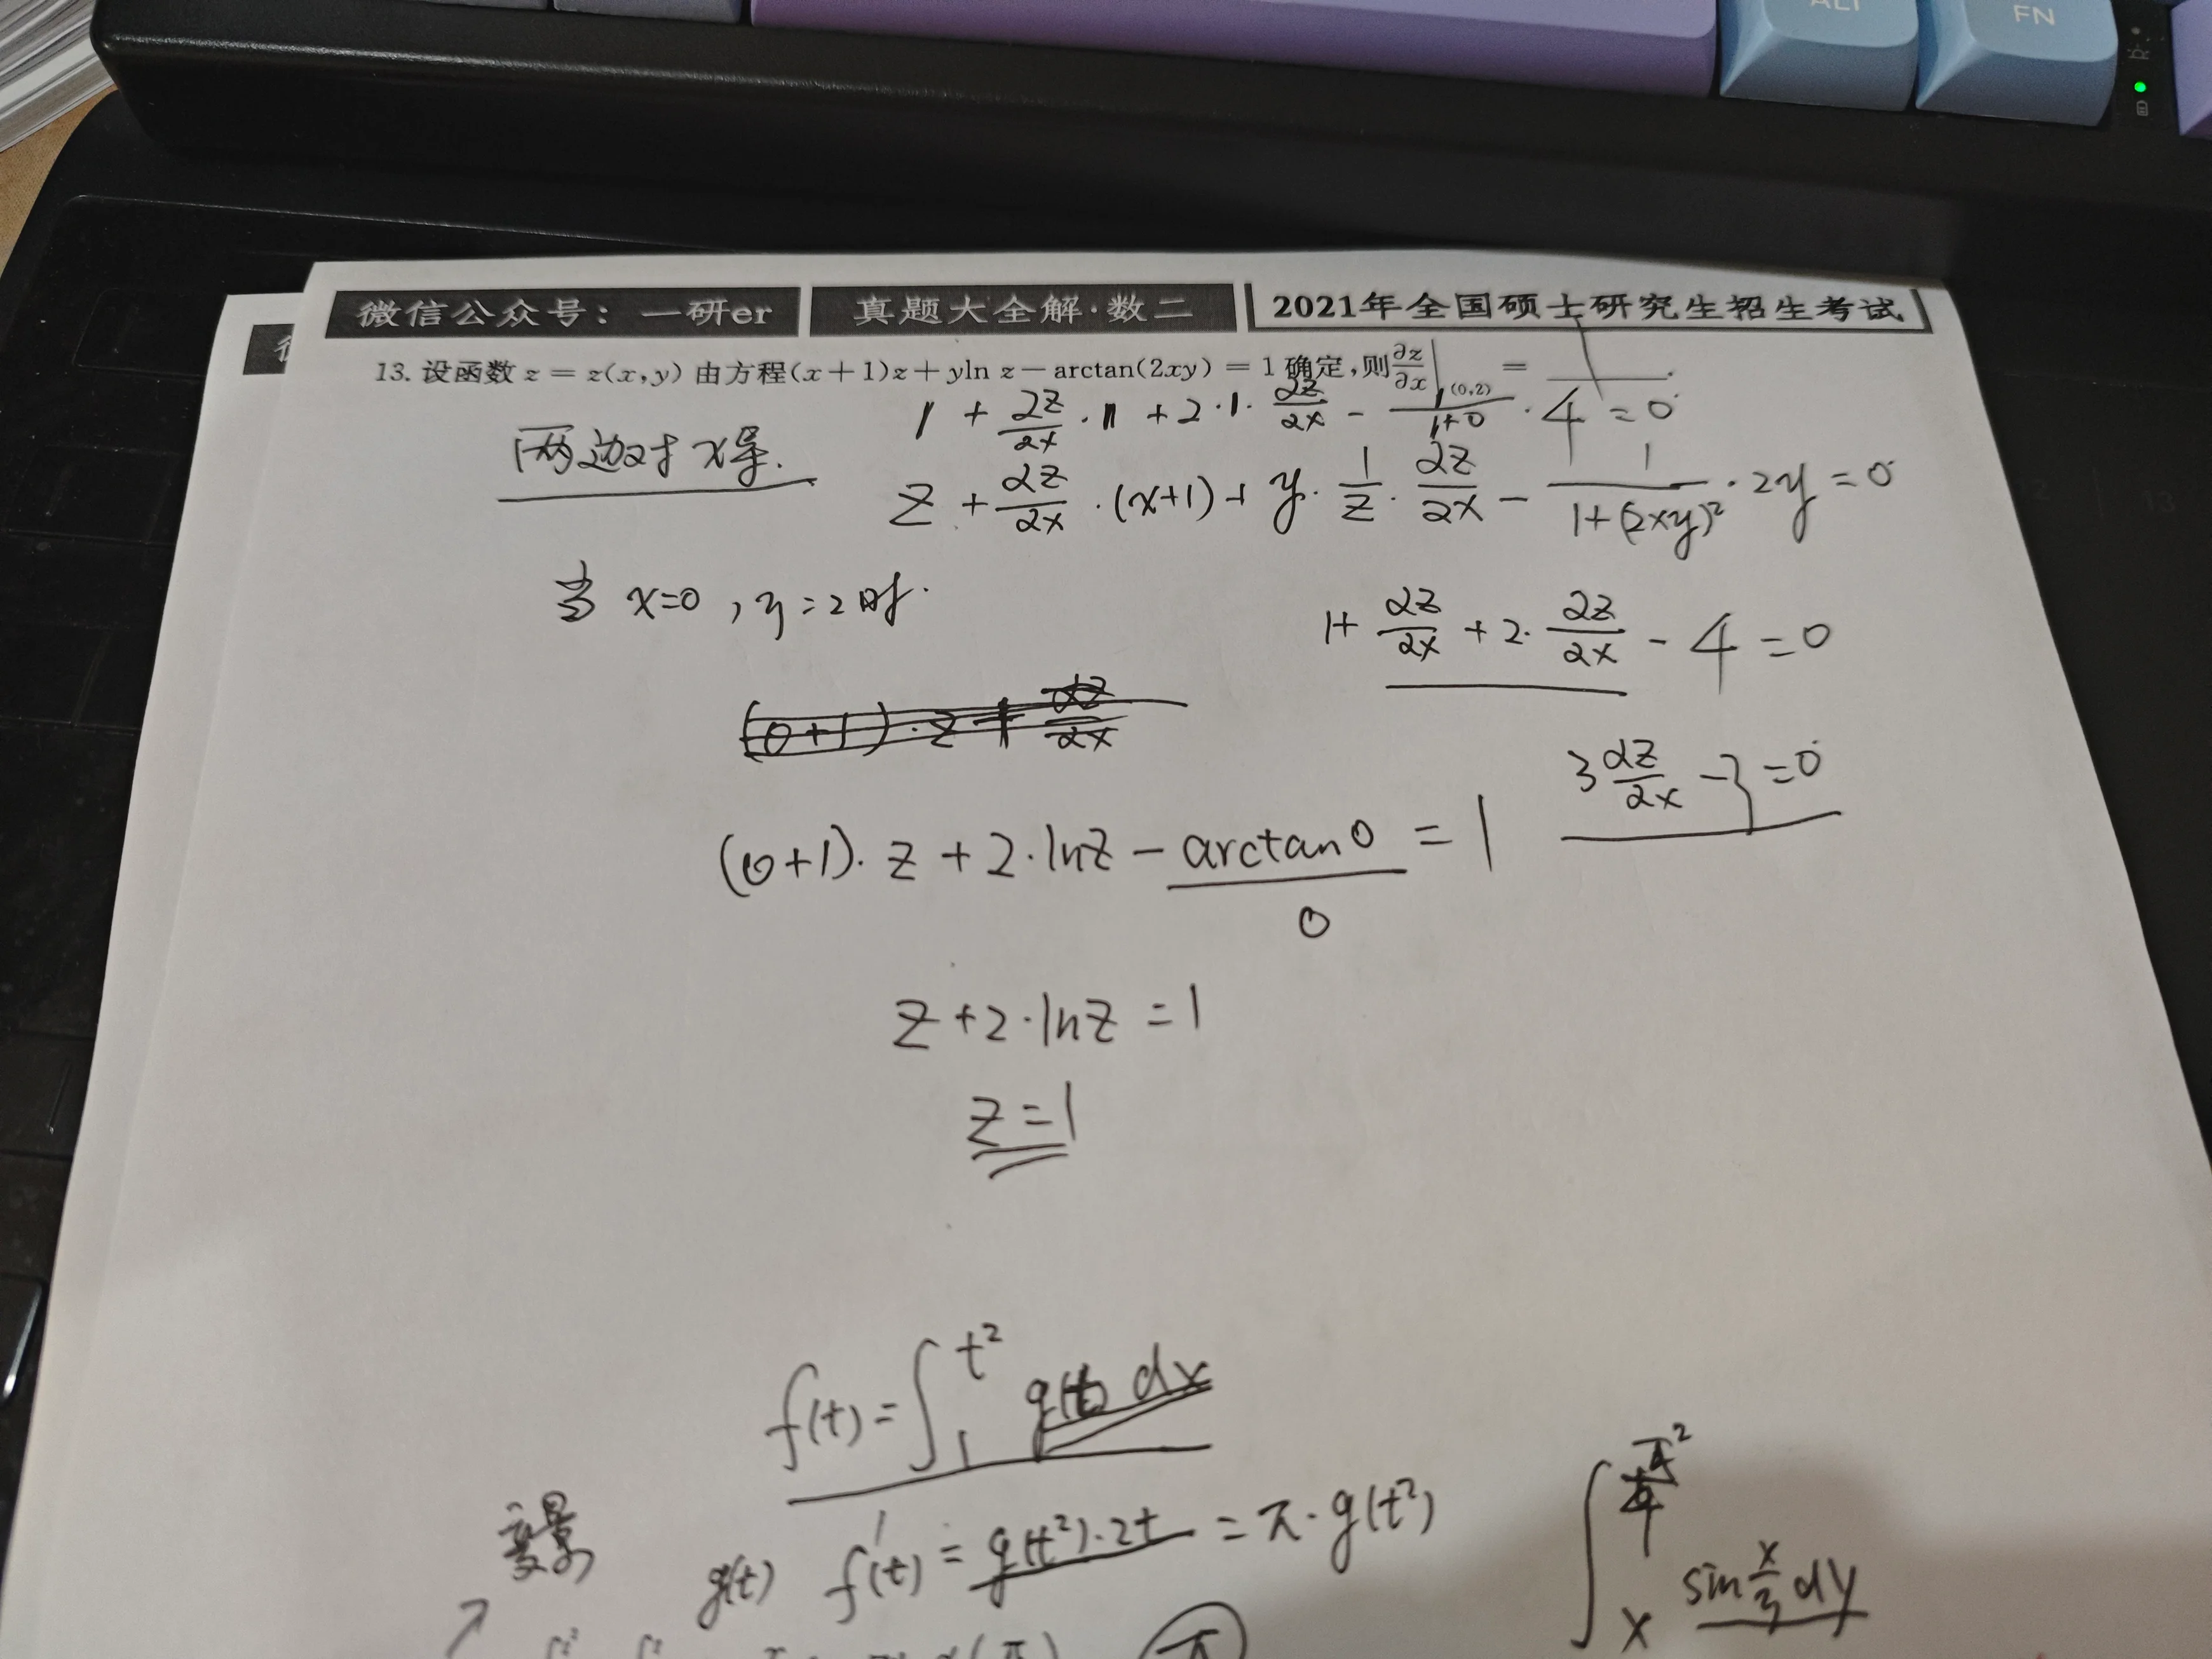 ALT
FN
微信公众号：一研er 真题大全解·数二 2021年全国硕士研究生招生考试
13. 设函数 z = z(x,y) 由方程(x+1)z+yln z−arctan(2xy) = 1 确定,则∂z/∂x|(0,2) = 1.
1 + ∂z/∂x · 1 + 2·1· ∂z/∂x − 1/(1+0) · 4 = 0
两边对x导.
z + ∂z/∂x · (x+1) + y · 1/z · ∂z/∂x − 1/(1+(2xy)²) · 2y = 0
当 x=0 , y=2时.
1+ ∂z/∂x + 2· ∂z/∂x − 4 = 0
(0+1)·z + ∂z/∂x
3 ∂z/∂x −3 = 0
(0+1)· z + 2·lnz − arctan0 = 1
0
z + 2·lnz = 1
z = 1
f(t) = ∫₁^t² g(t) dx
g(t) f'(t) = g(t²)·2t = π·g(t²)
sin x/3 dy
x